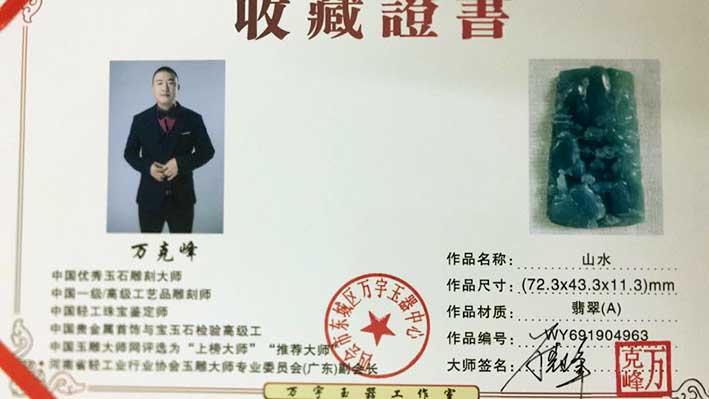 收藏證書
万克峰
中国优秀玉石雕刻大师
中国一级/高级工艺品雕刻师
中国轻工珠宝鉴定师
中国贵金属首饰与宝玉石检验高级工
中国玉雕大师网评选为“上榜大师”“推荐大师”
河南省轻工业行业协会玉雕大师专业委员会(广东)副会长
作品名称: 山水
作品尺寸: (72.3x43.3x11.3)mm
作品材质: 翡翠(A)
作品编号: WY691904963
大师签名:
万克峰
会市东城区万字玉器中心
万字玉器工作室